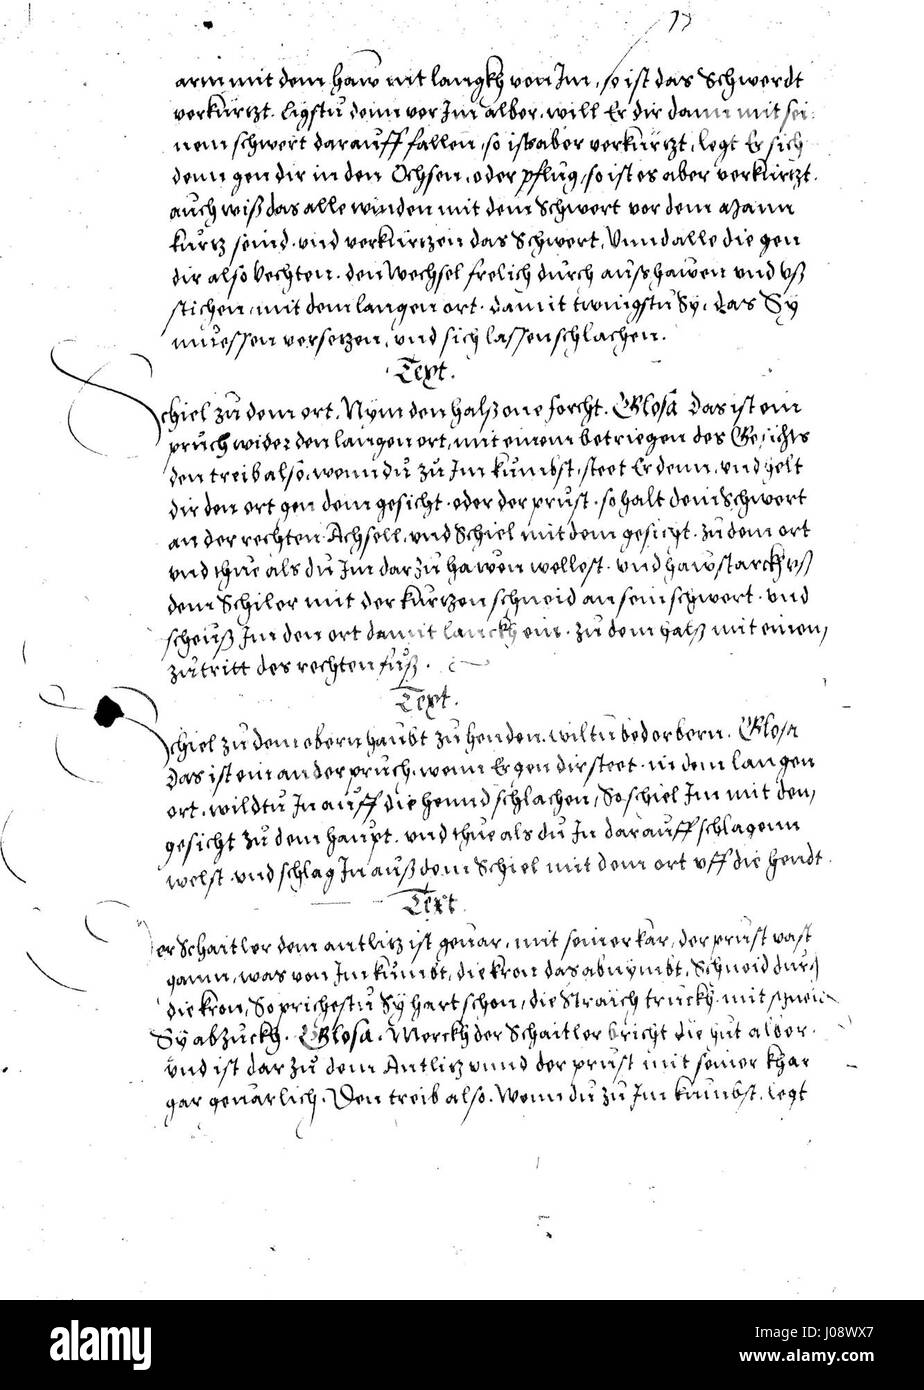 17
arm mit dem haw nit langkh von Im, so ist das Schwerdt
verkürtzt. Ligstu denn vor Im alber, will Er dir dann mit sei-
nem schwert darauff fallen, so ists aber verkürtzt, legt Er sich
denn gen dir in den Ochsen, oder pflug, so ist es aber verkürtzt.
auch wiß das alle winden mit dem Schwert vor dem Mann
kurtz seind. und verkürtzen das Schwert, Vnnd alle die gen
dir also vechten. den Wechsel frelich durch auß hawen vnd vß
stichen, mit dem langen ort. damit twingstu Sy, das Sy
muessen versetzen, vnd sich lassen schlachen.
Text.
Schiel zu dem ort, Nym den halß one forcht. Glosa Das ist ein
pruch wider den langen ort, mit einem betriegen des Gesichts
den treib also, wenn du zu Im kumbst, steet Er denn, vnd helt
dir den ort gen dem gesicht. oder der prust. so halt dein Schwert
an der rechten Achsell, vnd Schiel mit dem gesicht. zu dem ort
vnd thue als du Im dar zu hawen wellest. vnd haw starckh vß
dem Schiler mit der kurtzen schneid an sein schwert. vnd
scheuß Im den ort damit lanckh ein. zu dem halß mit einem
zutritt des rechten fuß.
Text.
Schiel zu dem obern haubt zu henden, wiltu bedorbern. Glosa
Das ist ein ander pruch, wenn Er gen dir steet. in dem langen
ort, wildtu In auff die hennd schlachen, So schiel Im mit dem
gesicht zu dem haupt. vnd thue als du In darauff schlagenn
welst. vnd schlag In auß dem Schiel mit dem ort vff die hendt.
Text
Der Schaitler dem antlitz ist gevar, mit seiner kar, der prust vast
gann, was von Im kumbt, die kron das abnymbt, Schneid durch
die kron, So prichestu Sy hart schon, die Straich truckh mit schneid
Sy abzuckh. Glosa. Merckh der Schaitler bricht die hut alber.
vnd ist dar zu dem Antlitz vnnd der prust mit seiner khar
gar gevarlich. Den treib also. Wenn du zu Im kumbst, legt
alamy
Image ID: J08WX7
www.alamy.com